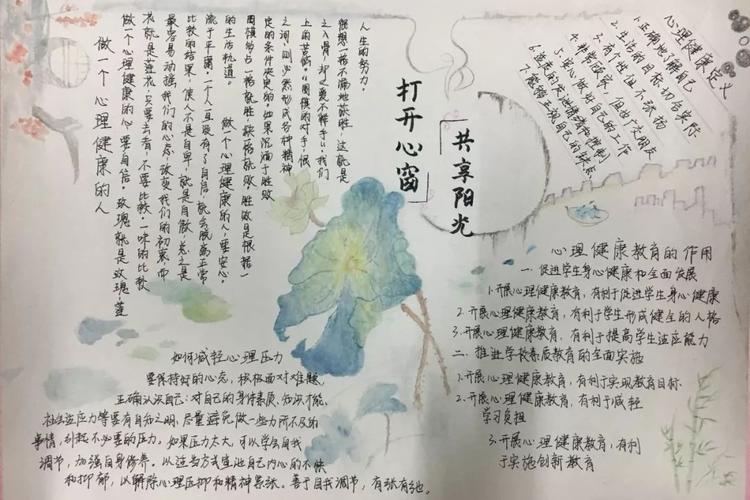 打开心窗
共享阳光
心理健康定义
1.正确地了解自己
2.生活的目标切合实际
3.有个性但不张扬
5.安心做好自己的工作
人生的努力.
之间,则必然形成各种精神
定的条件决定的.如果沉湎于胜败
的生活轨道.
做一个心理健康的人,要安心.
流于平庸.一个人一旦没有了自信,就会脱离正常
比较的结果,使人不是自卑,就是自傲,总之是
最容易动摇我们的心态,改变我们的初衷而
衣就是莲花,只要去看,不要比较.一味的比较
做一个心理健康的人要自信.玫瑰就是玫瑰,莲
做一个心理健康的人
如何减轻心理压力
要保持好的心态,积极面对难题,
正确认识自己:对自己的身体素质,知识才能,
社会适应力等要有自知之明,尽量避免做一些力所不及的
事情,引起不必要的压力.如果压力太大,可以学会自我
调节,加强自身修养.以适当方式宣泄自己内心的不快
和抑郁,以解除心理压抑和精神紧张.善于自我调节,有张有弛.
心理健康教育的作用
一.促进学生身心健康和全面发展
1.开展心理健康教育,有利于促进学生身心健康
2.开展心理健康教育,有利于学生形成健全的人格
3.开展心理健康教育,有利于提高学生适应能力
二.推进学校素质教育的全面实施
1.开展心理健康教育,有利于实现教育目标.
2.开展心理健康教育,有利于减轻
学习负担
3.开展心理健康教育,有利
于实施创新教育